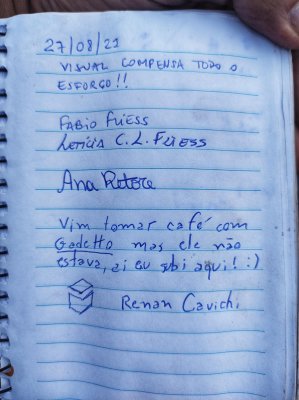 27/08/21
VISUAL COMPENSA TODO O
ESFORÇO!!
FABIO FLIESS
LETÍCIA C. L. FLIESS
Ana Retore
Vim tomar café com
Gadelto mas ele não
estava, ai eu subi aqui! :)
Renan Cavichi